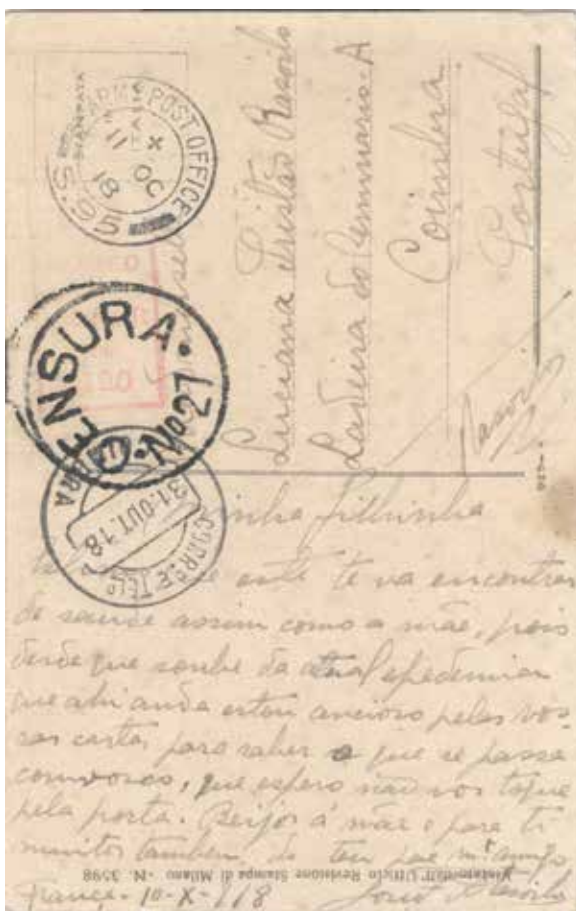 ARMY POST OFFICE
X
11 OC
18
S.95
CENSURA · Nº 27
CORR. E TELº
31.OUT.18
Luciana Tristão
Ladeira do Seminario-A
Coimbra
Portugal
filhinha
este te vá encontrar
de saude assim como a mãe, pois
desde que soube da atual epedemia
que ahi anda estou ancioso pelas vos-
sas cartas para saber o que se passa
comvosco, que espero não vos toque
pela porta. Beijos á mãe e para ti
muitos tambem, do teu pae mtº amigo
França-10-X-918
Visto Ufficio Revisione Stampa di Milano - N. 3598